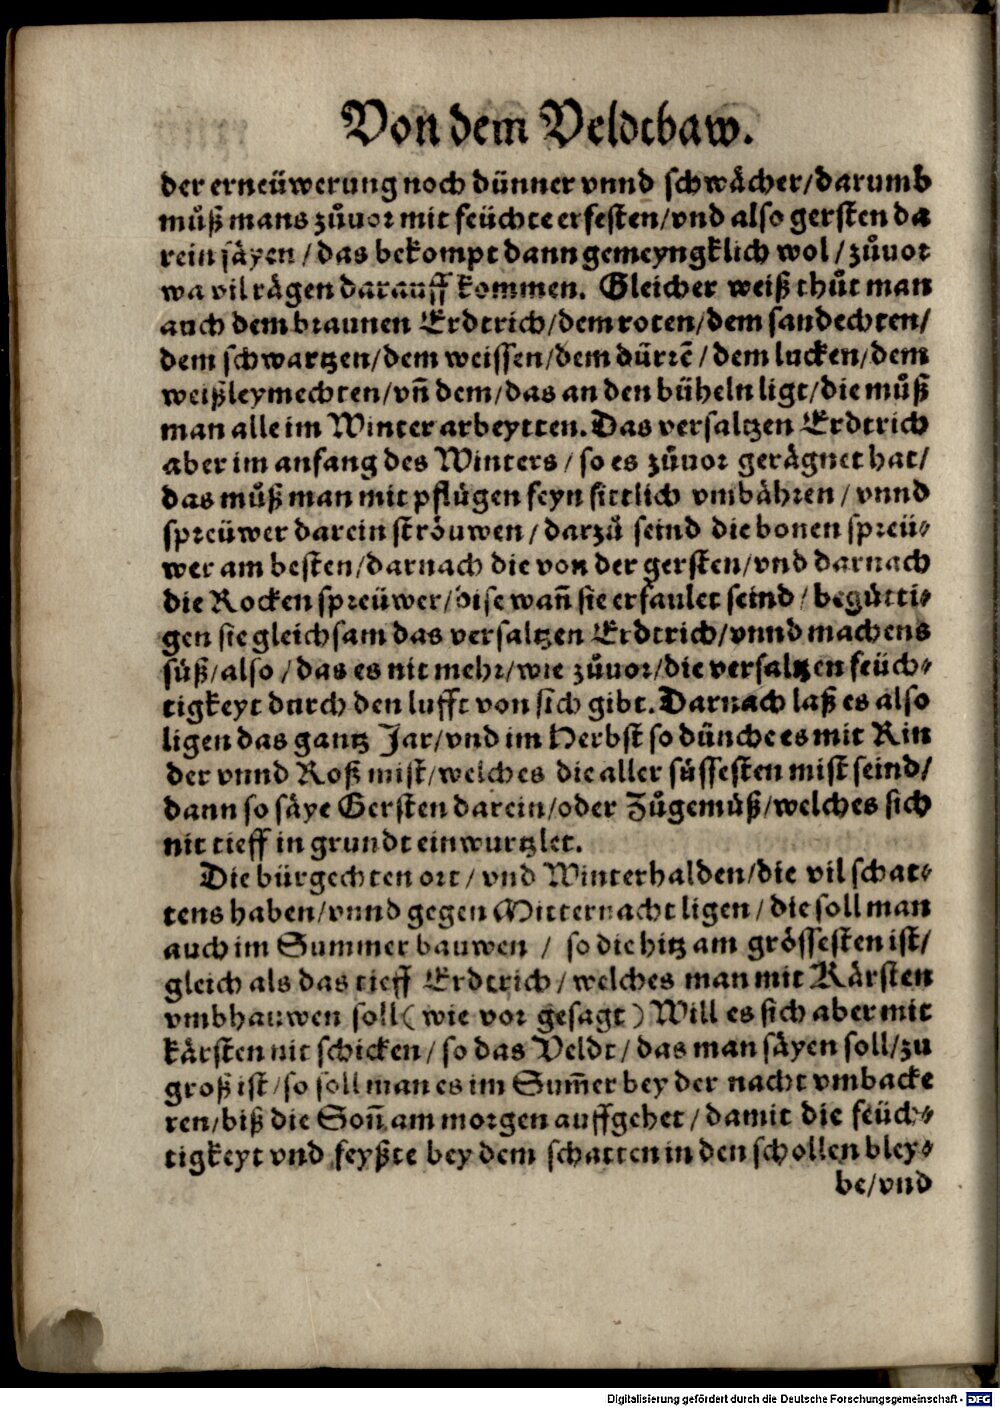 Von dem Veldtbaw.
der erneüwerung noch dünner vnnd schwächer/darumb
můß mans zůuor mit feüchte erfesten/vnd also gersten da
rein säyen/das bekompt dann gemeyngklich wol/zůuor
wa vil rägen darauff kommen. Gleicher weiß thůt man
auch dem braunen Erdtrich/dem roten/dem sandechten/
dem schwartzen/dem weissen/dem dürrẽ/dem lucken/dem
weißleymechten/vñ dem/das an den büheln ligt/die můß
man alle im Winter arbeytten. Das versaltzen Erdtrich
aber im anfang des Winters/so es zůuor gerägnet hat/
das můß man mit pflügen feyn sittlich vmbähren/vnnd
spreüwer darein ströuwen/darzů seind die bonen spreü⸗
wer am besten/darnach die von der gersten/vnd darnach
die Rocken spreüwer/dise wañ sie erfaulet seind/begütti⸗
gen sie gleichsam das versaltzen Erdtrich/vnnd machens
süß/also/das es nit mehr/wie zůuor/die versaltzen feüch⸗
tigkeyt durch den lufft von sich gibt. Darnach laß es also
ligen das gantz Jar/vnd im Herbst so dünche es mit Rin
der vnnd Roß mist/welches die aller süssesten mist seind/
dann so säye Gersten darein/oder Zůgemůß/welches sich
nit tieff in grundt einwurtzlet.
Die bürgechten ort/vnd Winterhalden/die vil schat⸗
tens haben/vnnd gegen Mitternacht ligen/die soll man
auch im Summer bauwen/so die hitz am grössesten ist/
gleich als das tieff Erdtrich/welches man mit Kärsten
vmbhauwen soll(wie vor gesagt)Will es sich aber mit
kärsten nit schicken/so das Veldt/das man säyen soll/zu
groß ist/so soll man es im Sum̃er bey der nacht vmbacke
ren/biß die Soñ am morgen auffgehet/damit die feüch⸗
tigkeyt vnd feyßte bey dem schatten in den schollen bley⸗
be/vnd
Digitalisierung gefördert durch die Deutsche Forschungsgemeinschaft - DFG